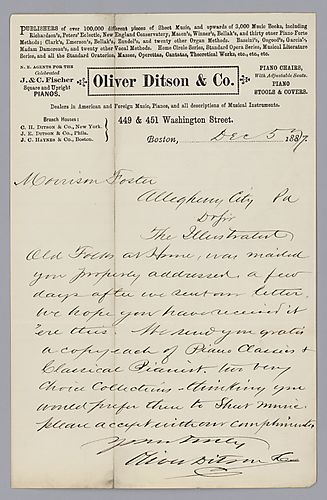 PUBLISHERS of over 100,000 different pieces of Sheet Music, and upwards of 3,000 Music Books, including
Richardson's, Peters' Eclectic, New England Conservatory, Mason's, Winner's, Bellak's, and thirty other Piano Forte
Methods; Clark's, Emerson's, Bellak's, Zundel's, and twenty other Organ Methods. Bassini's, Osgood's, Garcia's
Madam Damoreau's, and twenty other Vocal Methods. Home Circle Series, Standard Opera Series, Musical Literature
Series, and all the Standard Oratorios, Masses, Operettas, Cantatas, Theoretical Works, etc., etc.
N. E. AGENTS FOR THE
Celebrated
J. & C. Fischer
Square and Upright
PIANOS.
Oliver Ditson & Co.
PIANO CHAIRS,
With Adjustable Seats.
PIANO
STOOLS & COVERS.
Dealers in American and Foreign Music, Pianos, and all descriptions of Musical Instruments.
Branch Houses:
C. H. DITSON & Co., New York.
J. E. DITSON & Co., Phila.
J. C. HAYNES & Co., Boston.
449 & 451 Washington Street.
Boston, Dec 5 1887.
Morrison Foster
Allegheny City Pa
Dr Sir
The Illustrated
Old Folks at Home, was mailed
you properly addressed, a few
days after we sent our letter,
we hope you have received it
'ere this. We send you gratis
a copy each of Piano Classics &
Classical Pianist, two very
Choice Collections - thinking you
would prefer them to Sheet music
please accept with our compliments
Yours truly
Oliver Ditson & Co